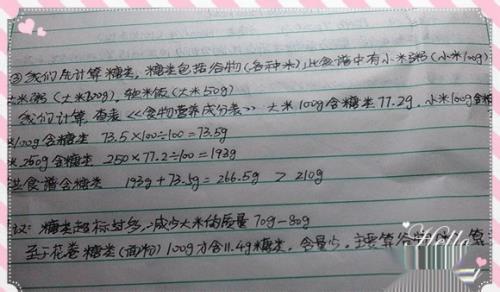 ③我们先计算糖类,糖类包括谷物(各种米)此食谱中有小米粥(小米100g)
大米粥(大米200g),米饭(大米50g)
我们计算,查表《食物营养成分表》大米100g含糖类77.2g,小米100g含糖
100g含糖类 73.5×100÷100=73.5g
250g含糖类 250×77.2÷100=193g
食谱含糖类 193g+73.5g=266.5g > 210g
议:糖类超标过多,减少大米的质量 70g-80g
至于花卷糖类(面粉)100g才含11.4g糖类,含量少,主要算谷物
Hello